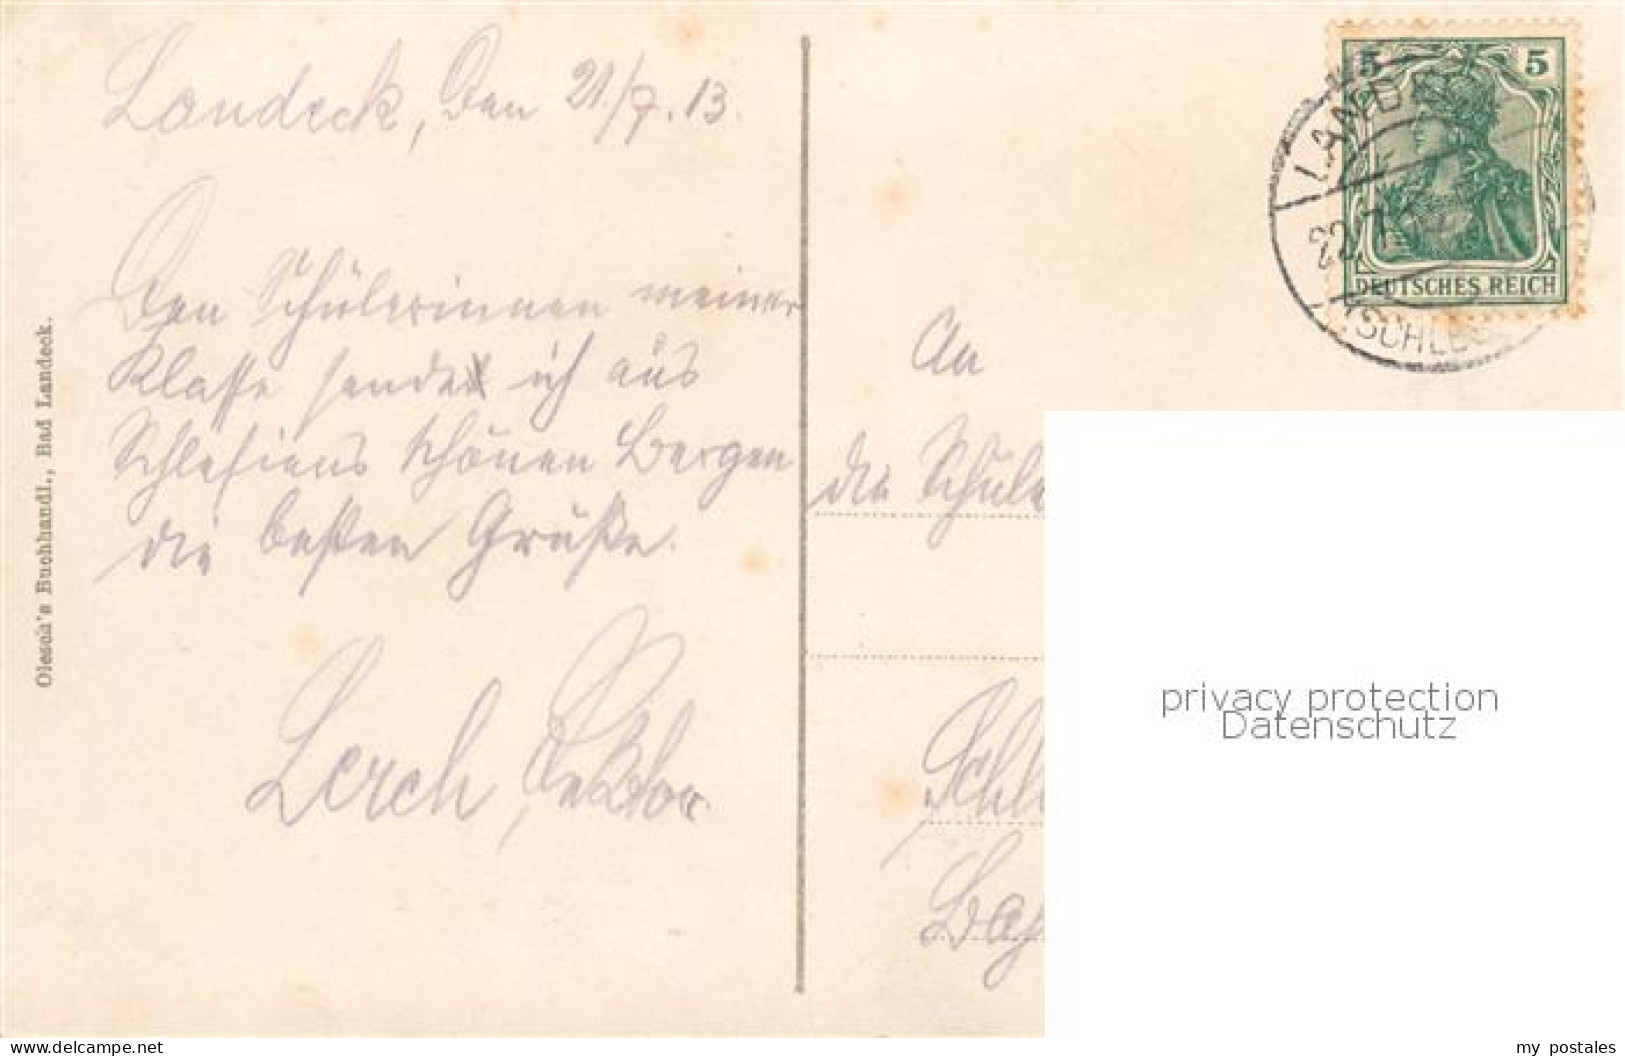 Landeck, den 21./7.13.
Den Schülerinnen meiner
Klasse sende ich aus
Schlesiens schönen Bergen
die besten Grüße.
Lerch, Rektor
Olesch's Buchhandl., Bad Landeck.
5 5
DEUTSCHES REICH
LANDECK
22.7.
(SCHLES
An
die Schüle
Schl
privacy protection
Datenschutz
www.delcampe.net
my postales